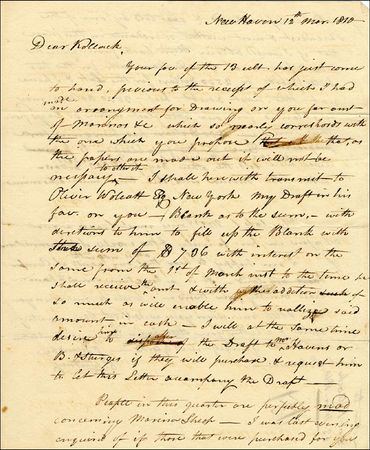 New Haven 12th Mar. 1810
Dear Kollock,
Your fav. of the 13 ult. has just come
to hand, previous to the receipt of which I had
made
an arrangment for Drawing on you for amt
of Marinos &c which so nearly corresponds with
the one which you propose that, as
the papers are made out it will not be
necessary to alter it — I shall herewith transmit to
Oliver Wolcott Esq New York my Draft in his
fav. on you — Blank as to the sum, — with
directions to him to fill up the Blank with
sum of $ 796 with interest on the
same from the 1st of March inst to the time he
shall receive the amt & with addition of
so much as will enable him to realize said
amount in cash — I will at the same time
desire him to of the Draft to Havens or
B. & Sturges if they will purchase & request him
to let this Letter accompany the Draft —
People in this quarter are perfectly mad
concerning Marino Sheep — I was last evening
enquired of if those that were purchased for you